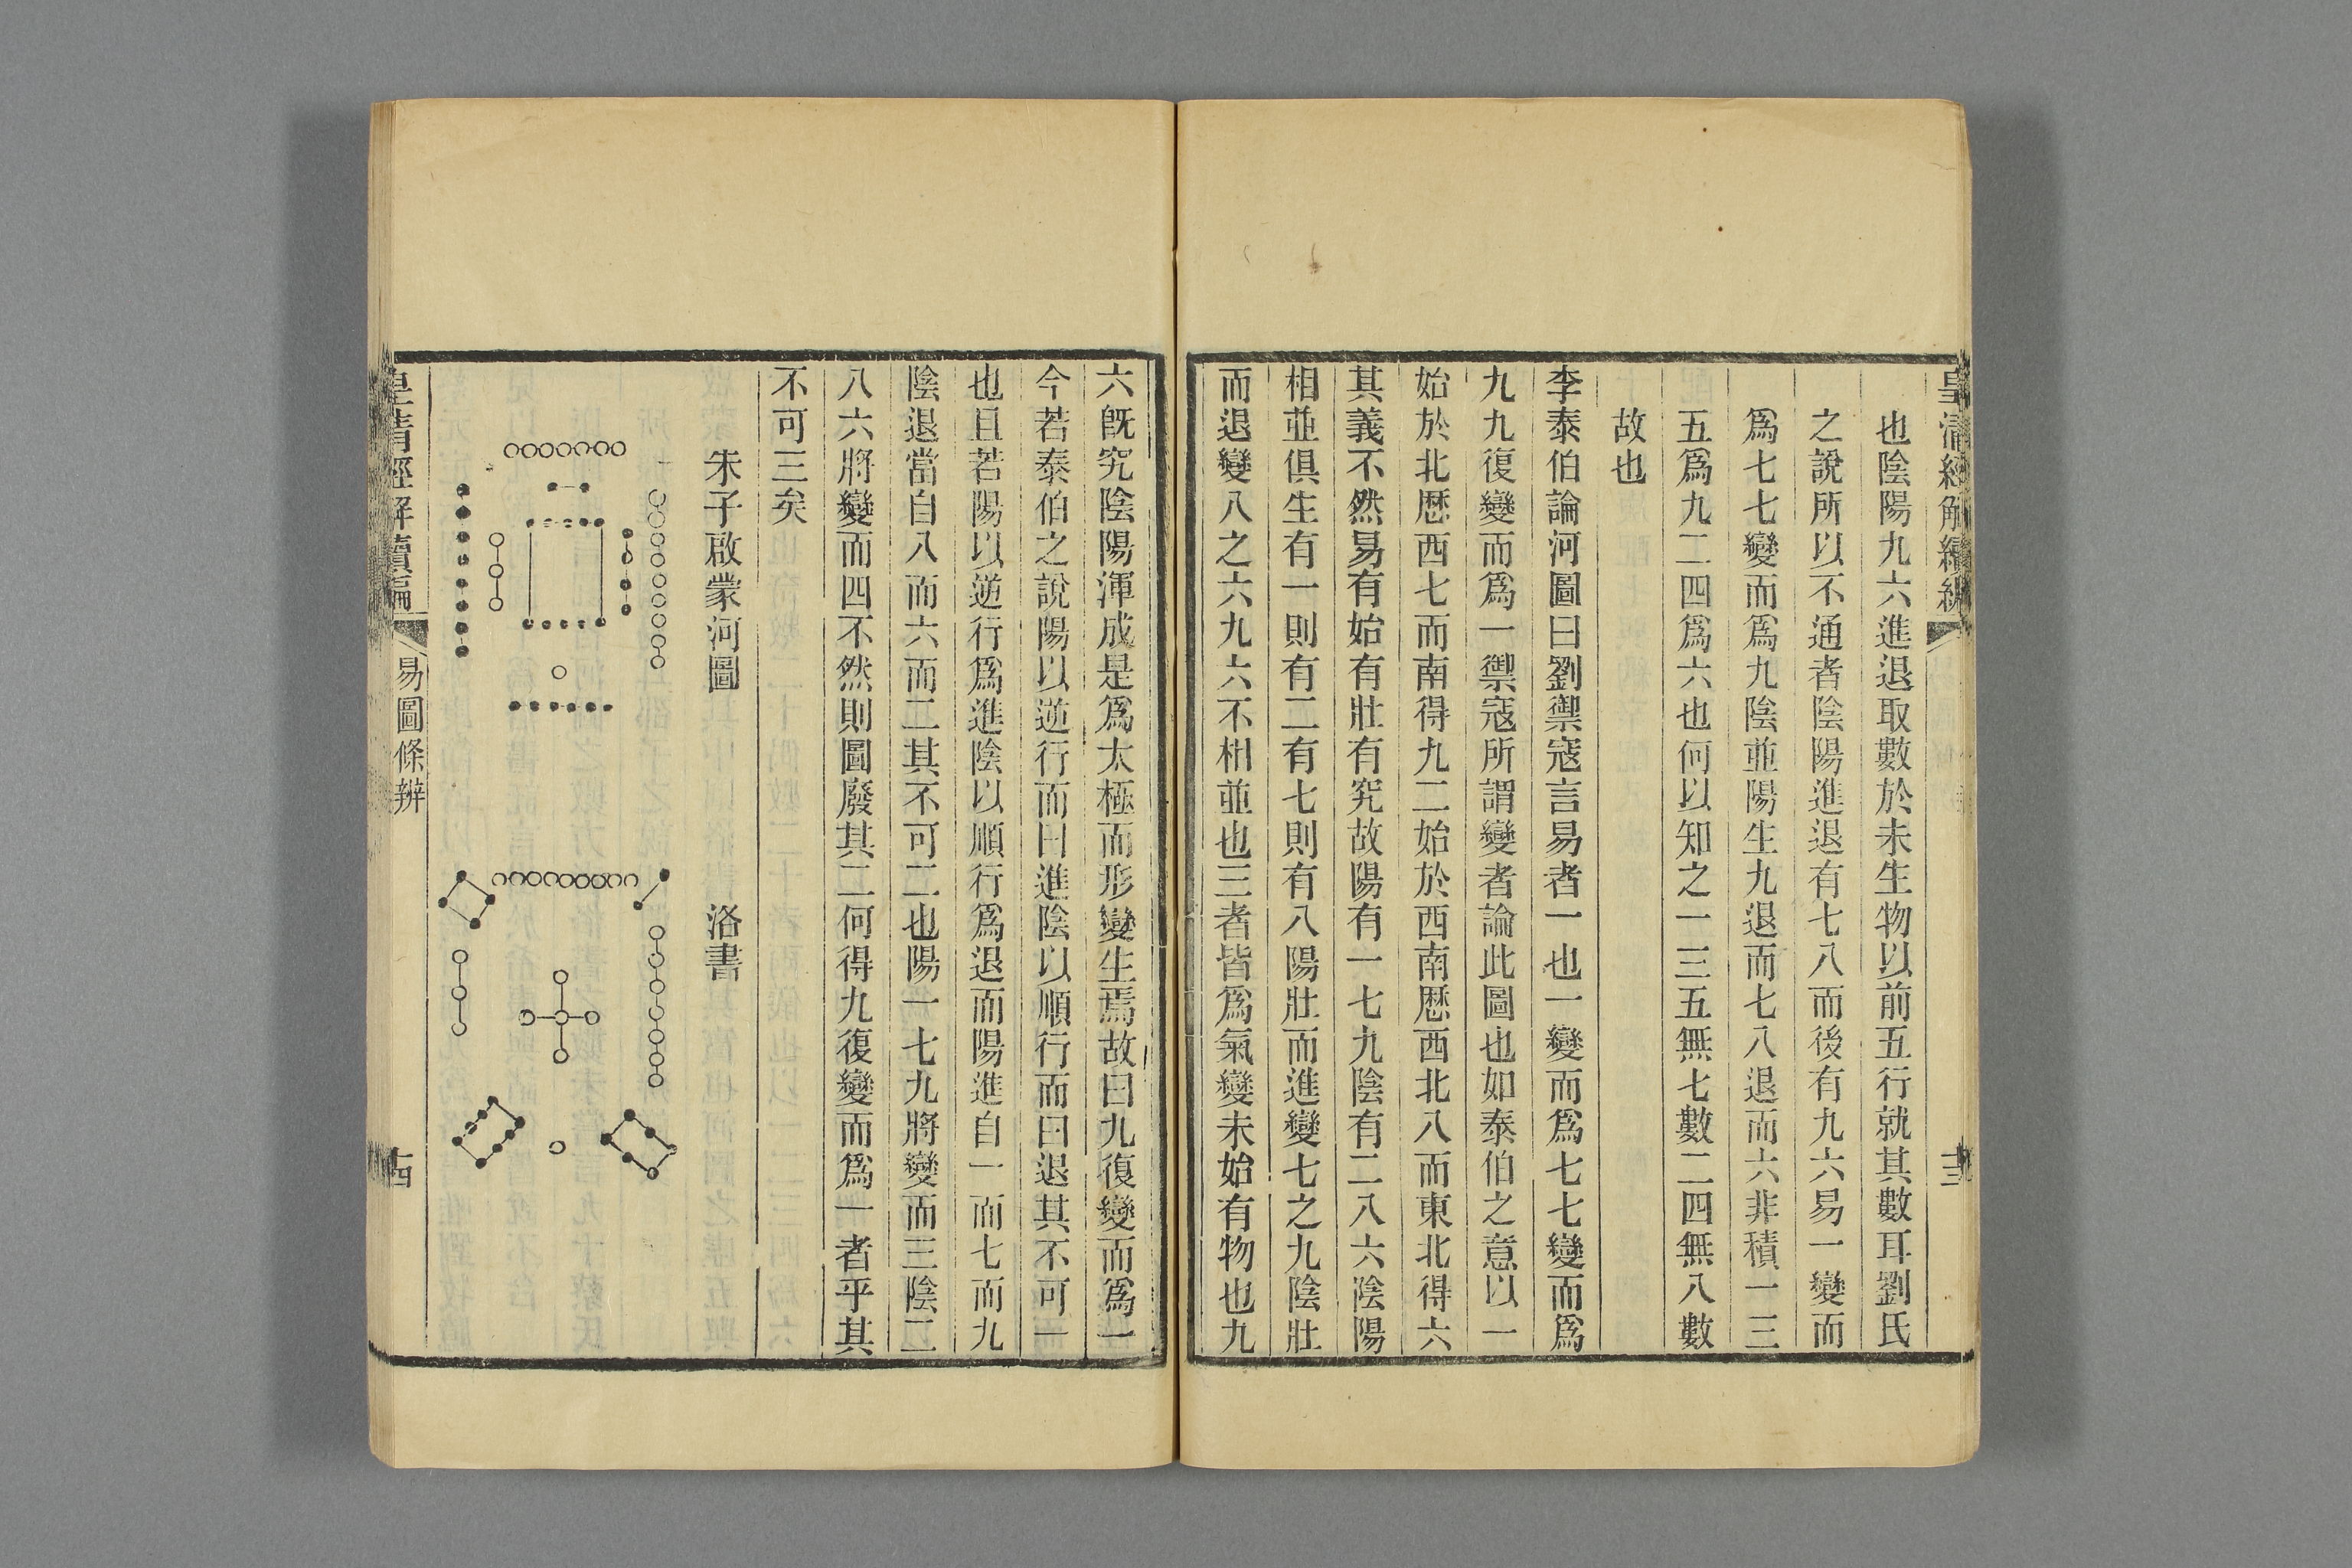 皇清經解續編
十三
也陰陽九六進退取數於未生物以前五行就其數耳劉氏
之說所以不通者陰陽進退有七八而後有九六易一變而
爲七七變而爲九陰並陽生九退而七八退而六非積一三
五爲九二四爲六也何以知之一三五無七數二四無八數
故也
李泰伯論河圖曰劉禦寇言易者一也一變而爲七七變而爲
九九復變而爲一禦寇所謂變者論此圖也如泰伯之意以一
始於北歷西七而南得九二始於西南歷西北八而東北得六
其義不然易有始有壯有究故陽有一七九陰有二八六陰陽
相並俱生有一則有二有七則有八陽壯而進變七之九陰壯
而退變八之六九六不相並也三者皆爲氣變未始有物也九
六旣究陰陽渾成是爲太極而形變生焉故曰九復變而爲一
今若泰伯之說陽以逆行而曰進陰以順行而曰退其不可一
也且若陽以逆行爲進陰以順行爲退而陽進自一而七而九
陰退當自八而六而二其不可二也陽一七九將變而三陰二
八六將變而四不然則圖廢其二何得九復變而爲一者乎其
不可三矣
朱子啟蒙河圖
洛書
皇清經解續編
易圖條辨
十四